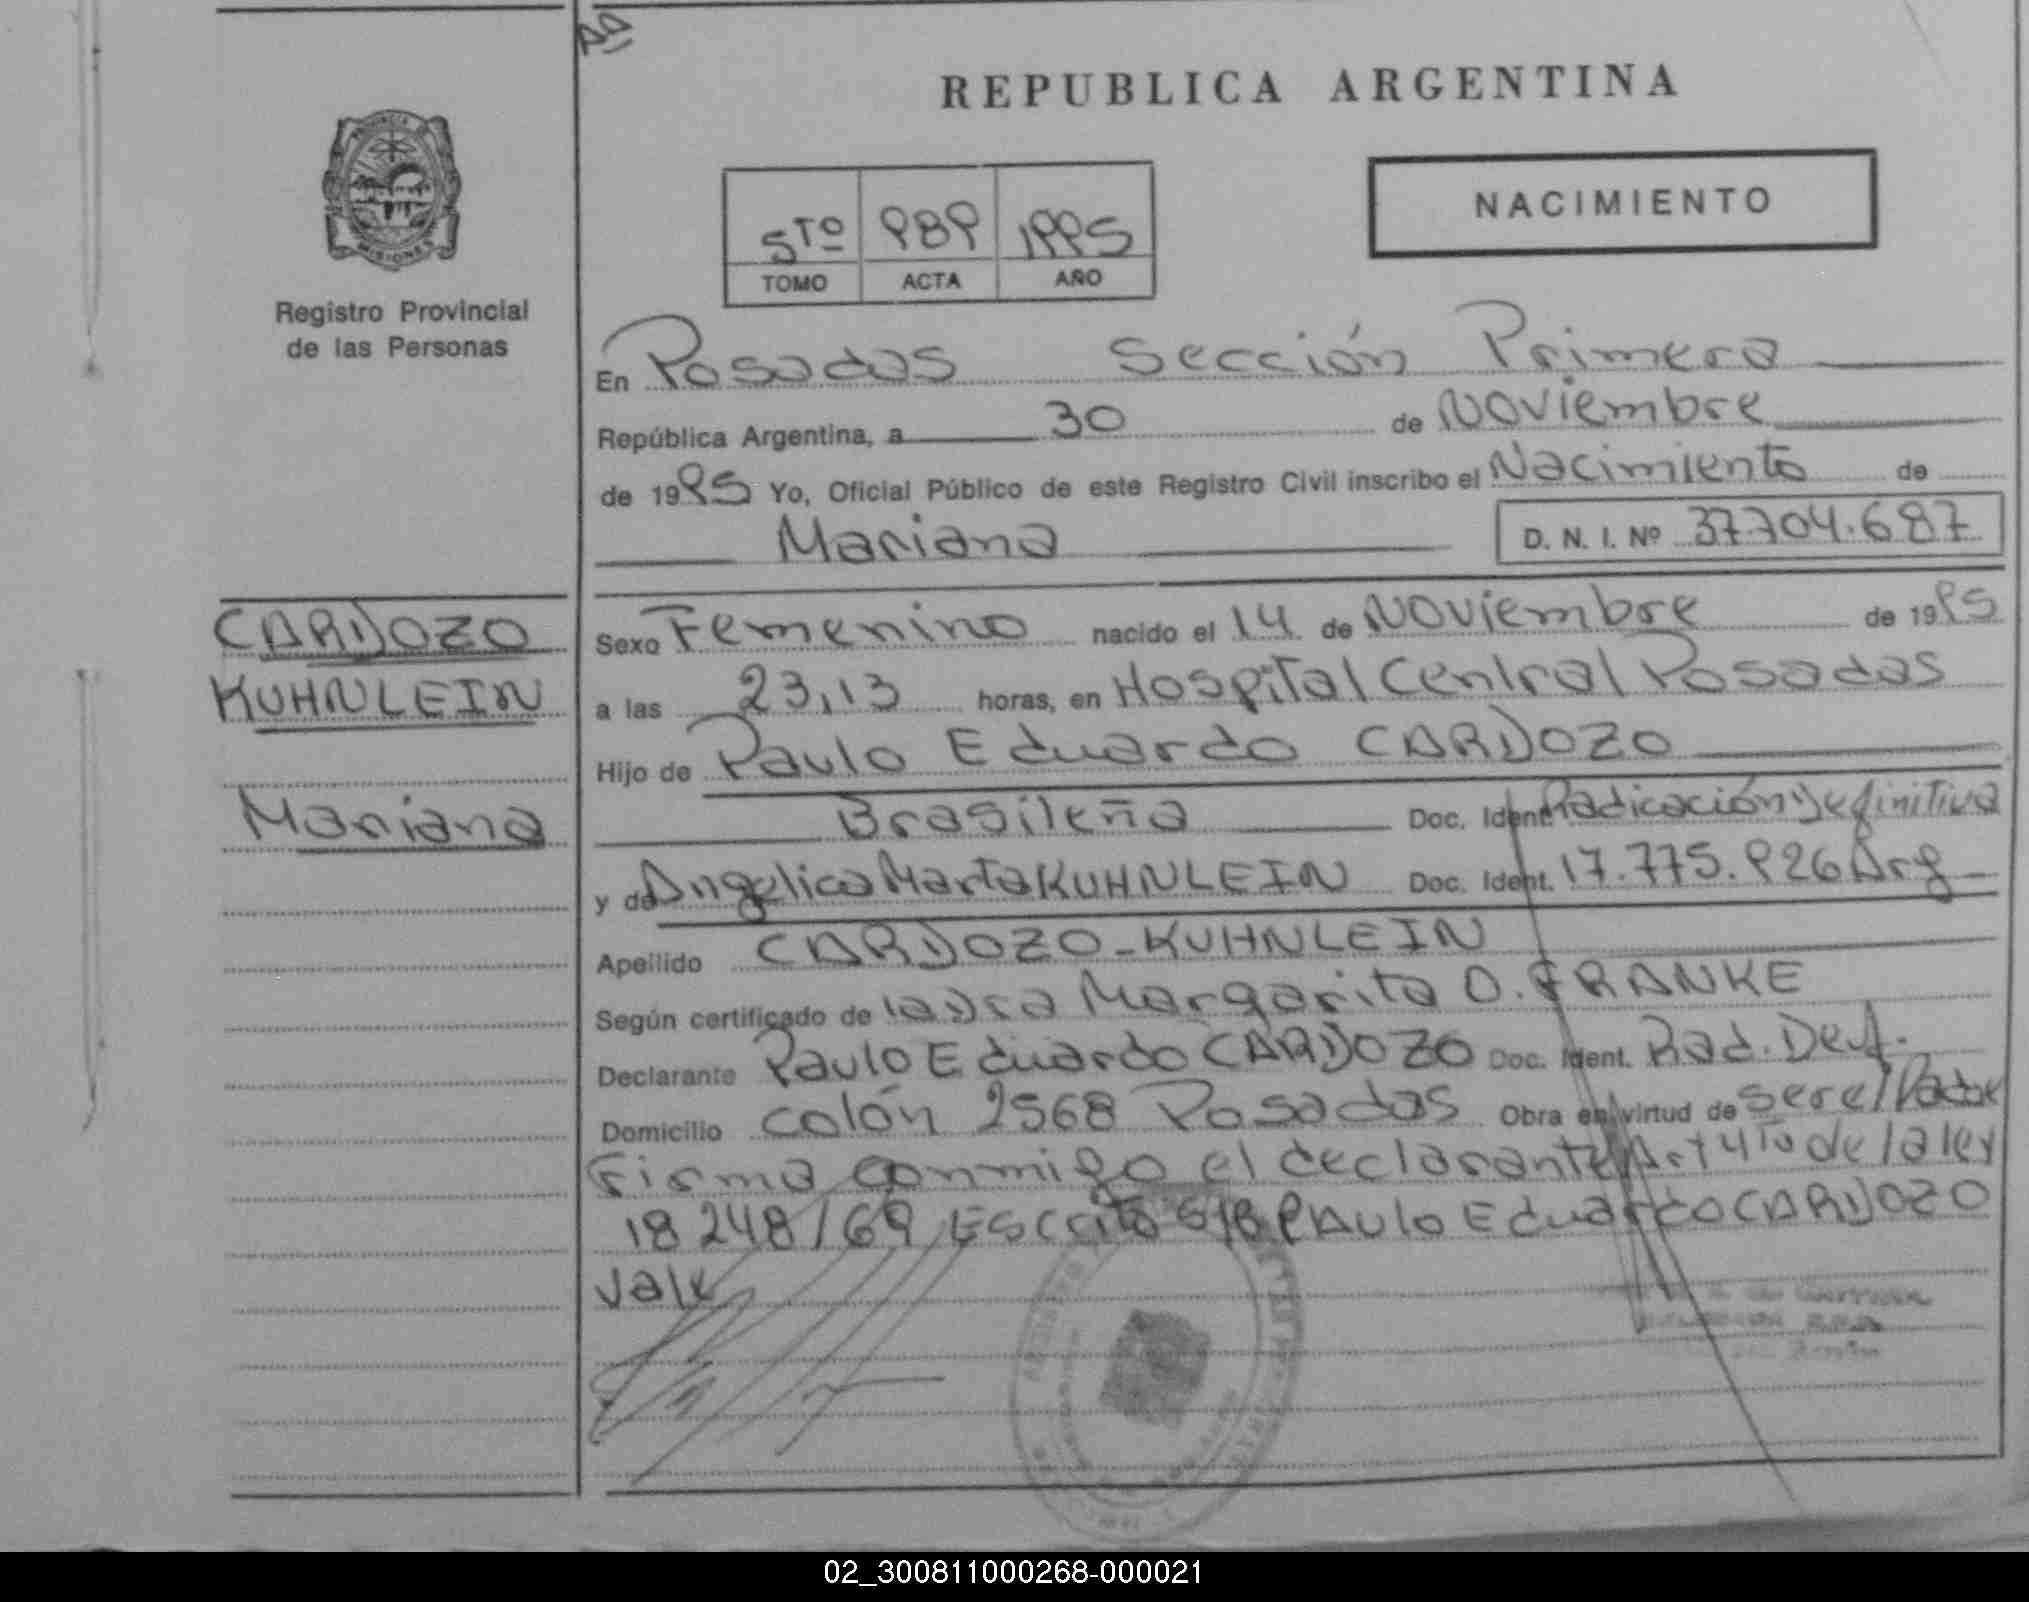 REPUBLICA ARGENTINA
PROVINCIA DE
MISIONES
Registro Provincial
de las Personas
NACIMIENTO
5TO 989 1995
TOMO ACTA AÑO
En Posadas Sección Primera
República Argentina, a 30 de Noviembre
de 1995 Yo, Oficial Público de este Registro Civil inscribo el Nacimiento de
Mariana D. N. I. Nº 37.704.687
CARDOZO
KUHNLEIN
Mariana
Sexo Femenino nacido el 14 de Noviembre de 1995
a las 23,13 horas, en Hospital Central Posadas
Hijo de Paulo Eduardo CARDOZO
Brasileña Doc. Ident. Radicación Definitiva
y de Angelica Marta KUHNLEIN Doc. Ident. 17.775.926 Arg
Apellido CARDOZO-KUHNLEIN
Según certificado de la Dra Margarita O. FRANKE
Declarante Paulo Eduardo CARDOZO Doc. Ident. Rad. Def.
Domicilio Colón 2568 Posadas Obra en virtud de ser el Padre
Firma conmigo el declarante Art 4to de la ley
18248/69 Escrito S/B PAulo Eduardo CARDOZO
Vale
02_300811000268-000021